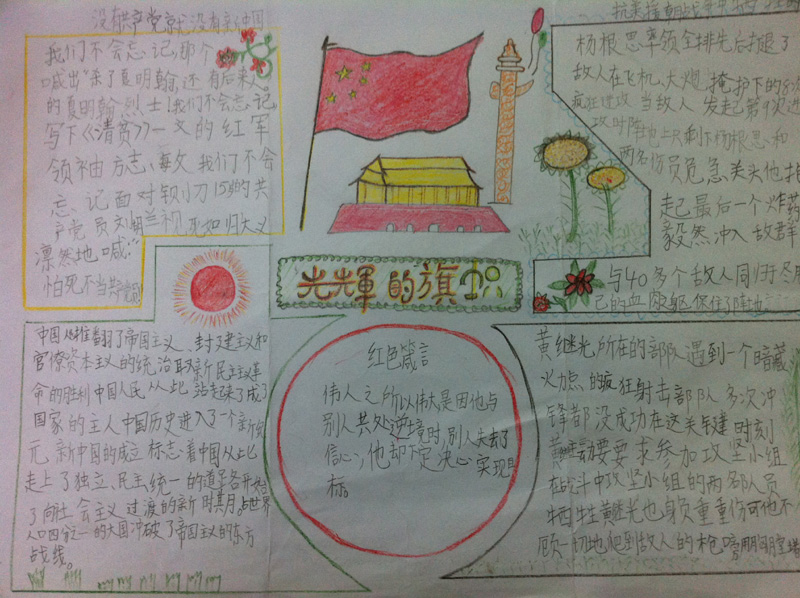 没有共产党就没有新中国
我们不会忘记,那个
喊出"杀了夏明翰,还有后来人"
的夏明翰烈士!我们不会忘记
写下《清贫》一文的红军
领袖方志敏。我们不会
忘记面对铡刀15岁的共
产党员刘胡兰视死如归大义
凛然地喊:"
怕死不当共产党员
抗美援朝战争中
杨根思率领全排先后打退了
敌人在飞机、大炮掩护下的8次
疯狂进攻当敌人发起第9次进
攻时阵地上只剩下杨根思和
两名伤员危急关头他抱
起最后一个炸药
毅然冲入敌群
与40多个敌人同归于尽用
己的血肉躯保住了阵地
光辉的旗帜
中国人民推翻了帝国主义、封建主义和
官僚资本主义的统治取新民主主义革
命的胜利中国人民从此站起来了成了
国家的主人中国历史进入了一个新纪
元新中国的成立标志着中国从此
走上了独立、民主、统一的道路开始
了向社会主义过渡的新时期占世界
人口四分之一的大国冲破了帝国主义的东方
战线。
红色箴言
伟人之所以伟大是因他与
别人共处逆境时,别人失去了
信心,他却下定决心实现目
标。
黄继光所在的部队遇到一个暗藏
火力点的疯狂射击部队多次冲
锋都没成功在这关键时刻
黄继光要求参加攻坚小组
在战斗中攻坚小组的两名队员
牺牲黄继光也身负重伤可他不
顾一切地爬到敌人的枪旁用胸膛堵